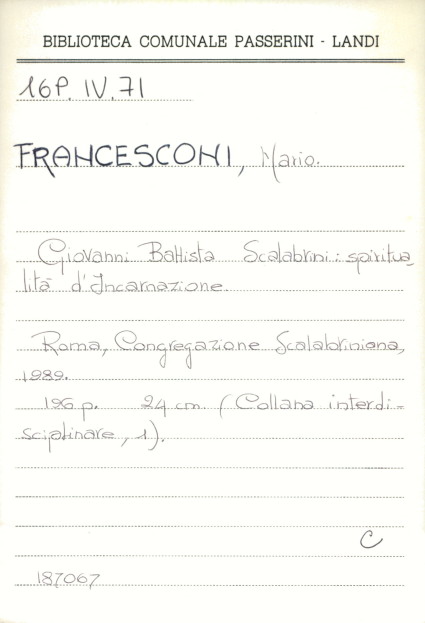 BIBLIOTECA COMUNALE PASSERINI - LANDI
16P. IV. 71
FRANCESCONI, Mario.
Giovanni Battista Scalabrini: spiritua_
lità d'Incarnazione.
Roma, Congregazione Scalabriniana,
1989.
196 p. 24 cm. (Collana interdi=
sciplinare, 1).
C
187067